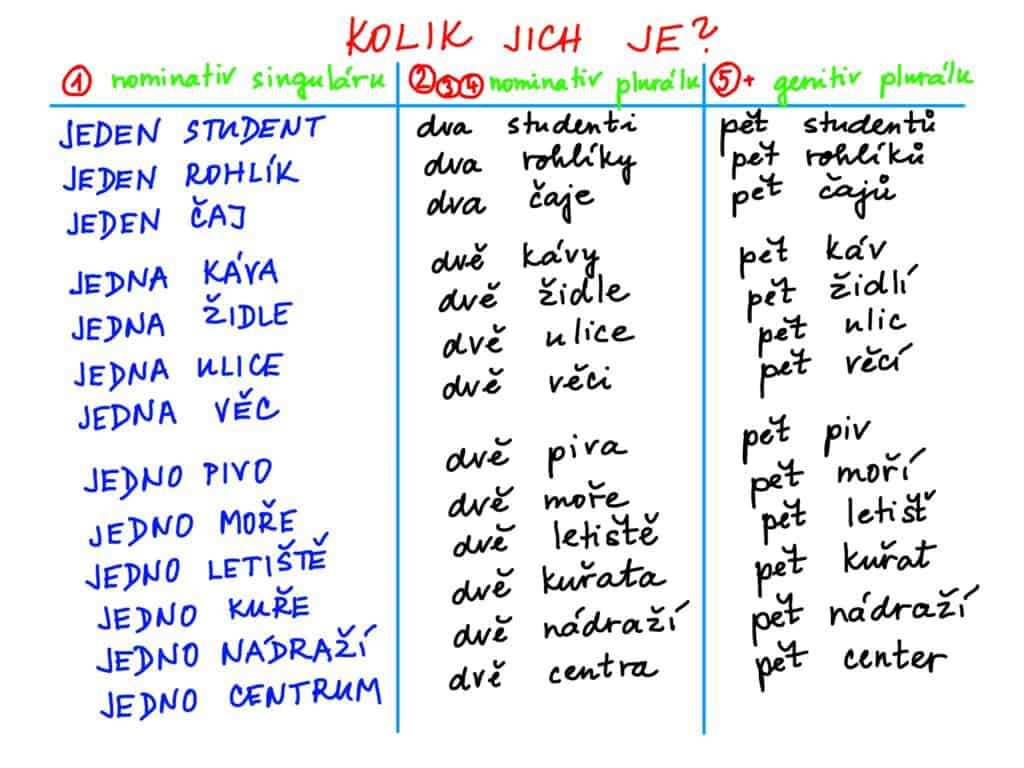 KOLIK JICH JE?
1 nominativ singuláru 2 3 4 nominativ plurálu 5+ genitiv plurálu
JEDEN STUDENT dva studenti pět studentů
JEDEN ROHLÍK dva rohlíky pět rohlíků
JEDEN ČAJ dva čaje pět čajů
JEDNA KÁVA dvě kávy pět káv
JEDNA ŽIDLE dvě židle pět židlí
JEDNA ULICE dvě ulice pět ulic
JEDNA VĚC dvě věci pět věcí
JEDNO PIVO dvě piva pět piv
JEDNO MOŘE dvě moře pět moří
JEDNO LETIŠTĚ dvě letiště pět letišť
JEDNO KUŘE dvě kuřata pět kuřat
JEDNO NÁDRAŽÍ dvě nádraží pět nádraží
JEDNO CENTRUM dvě centra pět center